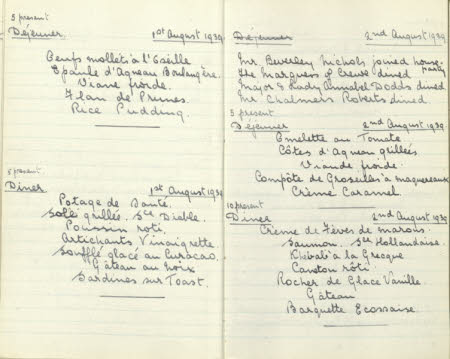 5 present
Déjeuner. 1st August 1939
Oeufs mollets à l'Oseille
Epaule d'Agneau Boulangère.
Viande froide.
Flan de Prunes.
Rice Pudding.
5 present.
Diner. 1st August 1939
Potage de Santé.
Sole grillée. Sce Diable.
Poussin roti.
Artichauts Vinaigrette.
Soufflé glacé au Curacao.
Gâteau au Noix
Sardines sur Toast.
Déjeuner 2nd August 1939
Mr Beverley Nichols joined house party
The Marquess of Crewe dined
Major & Lady Annabel Dodds dined
Mr Chalmers Roberts dined
5 present
Déjeuner 2nd August 1939
Omelette au Tomate
Côtes d'Agneau grillées
Viande froide.
Compôte de Groseilles à maquereaux
Crème Caramel
10 present
Diner 2nd August 1939
Crème de Fèves de marais.
Saumon. Sce Hollandaise
à la Grecque
Caneton rôti
Rocher de Glace Vanille.
Gâteau
Barquette Ecossaise.